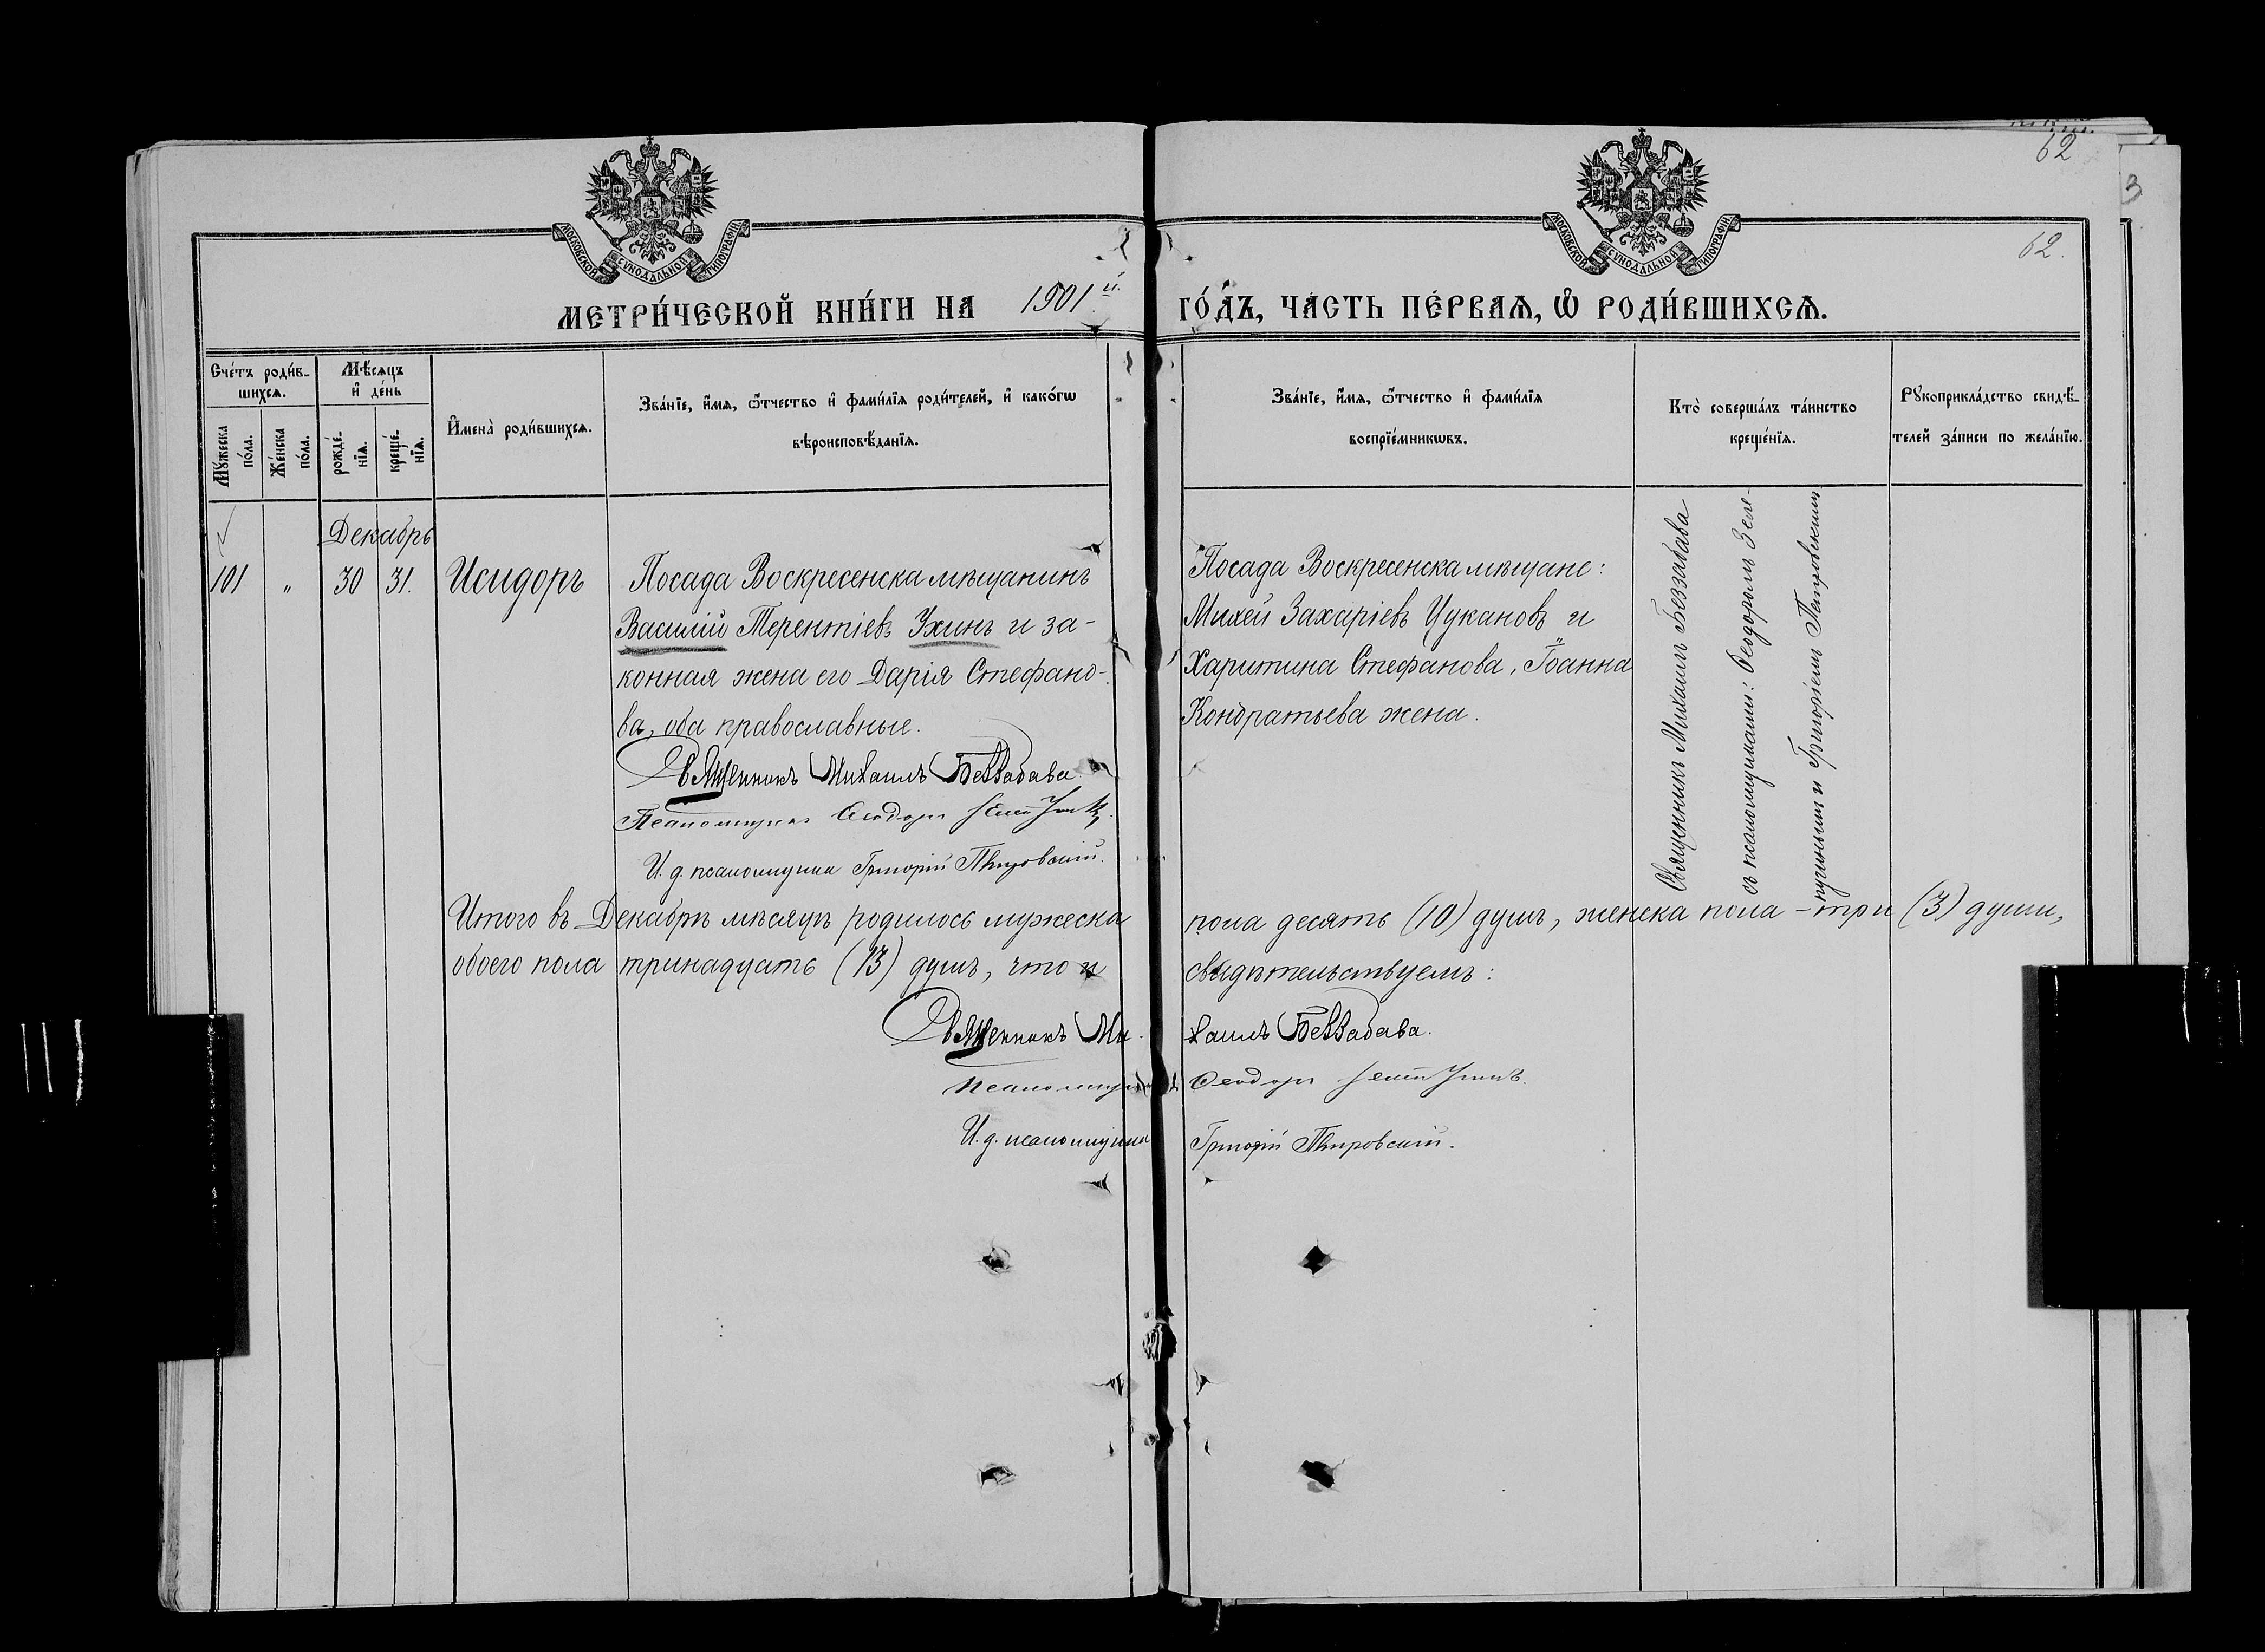 62
3
МОСКОВСКОЙ СѴНОДАЛЬНОЙ ТИПОГРАФІИ
МОСКОВСКОЙ СѴНОДАЛЬНОЙ ТИПОГРАФІИ
62.
МЕТРИ́ЧЕСКОЙ КНИ́ГИ НА 1901й. ГО́ДЪ, ЧА́СТЬ ПЕ́РВАѦ, Ѡ҆ РОДИ́ВШИХСѦ.
Сче́тъ роди́в-
шихсѧ.
Мѣ́сѧцъ
и҆ де́нь
Мꙋ́жеска
по́ла.
Же́нска
по́ла.
рожде́-
нїѧ.
креще́-
нїѧ.
И҆мена̀ роди́вшихсѧ.
Зва́нїе, и҆́мѧ, ѻ҆́тчество и҆ фами́лїѧ роди́телей, и҆ како́гѡ
вѣроисповѣ́данїѧ.
Зва́нїе, и҆́мѧ, ѻ҆́тчество и҆ фами́лїѧ
воспрїе́мникѡвъ.
Кто̀ соверша́лъ та́инство
креще́нїѧ.
Рꙋкоприкла́дство свидѣ́-
телей за́писи по жела́нїю.
Декабрь
101 " 30 31. Исидоръ
Посада Воскресенска мѣщанинъ
Василій Терентіевъ Ухинъ и за-
конная жена его Дарія Стефано-
ва, оба православные.
Священникъ Михаилъ Беззабава.
Псаломщикъ Ѳеодоръ
И. д. псаломщика Григорій
Посада Воскресенска мѣщане:
Михей Захаріевъ Цукановъ и
Харитина Стефанова, Іоанна
Кондратьева жена.
Священникъ Михаилъ Беззабава
съ псаломщиками: Ѳеодоромъ
и Григоріемъ
Итого въ Декабрѣ мѣсяцѣ родилось мужеска пола десять (10) душъ, женска пола – три (3) души,
обоего пола тринадцать (13) душъ, что и свидѣтельствуемъ:
Священникъ Михаилъ Беззабава.
Псаломщикъ Ѳеодоръ
И. д. псаломщика Григорій